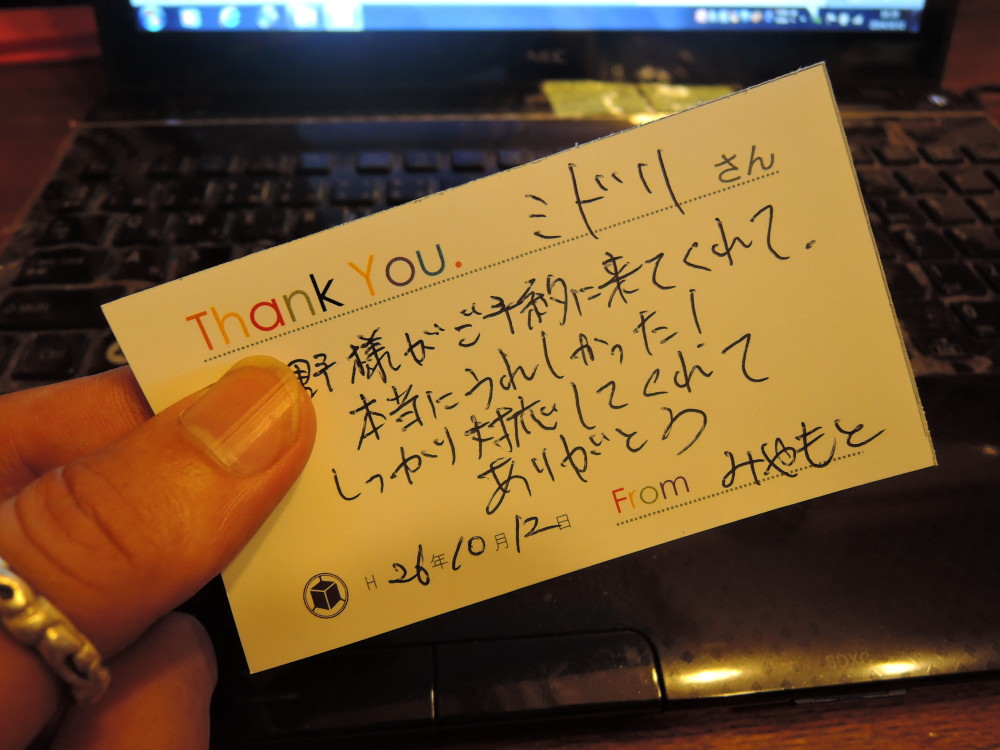 ミドリ さん
Thank You.
野様がご予約に来てくれて.
本当にうれしかった!
しっかり対応してくれて
ありがとう
From みやもと
H 26年10月12日
NEC
SDXC